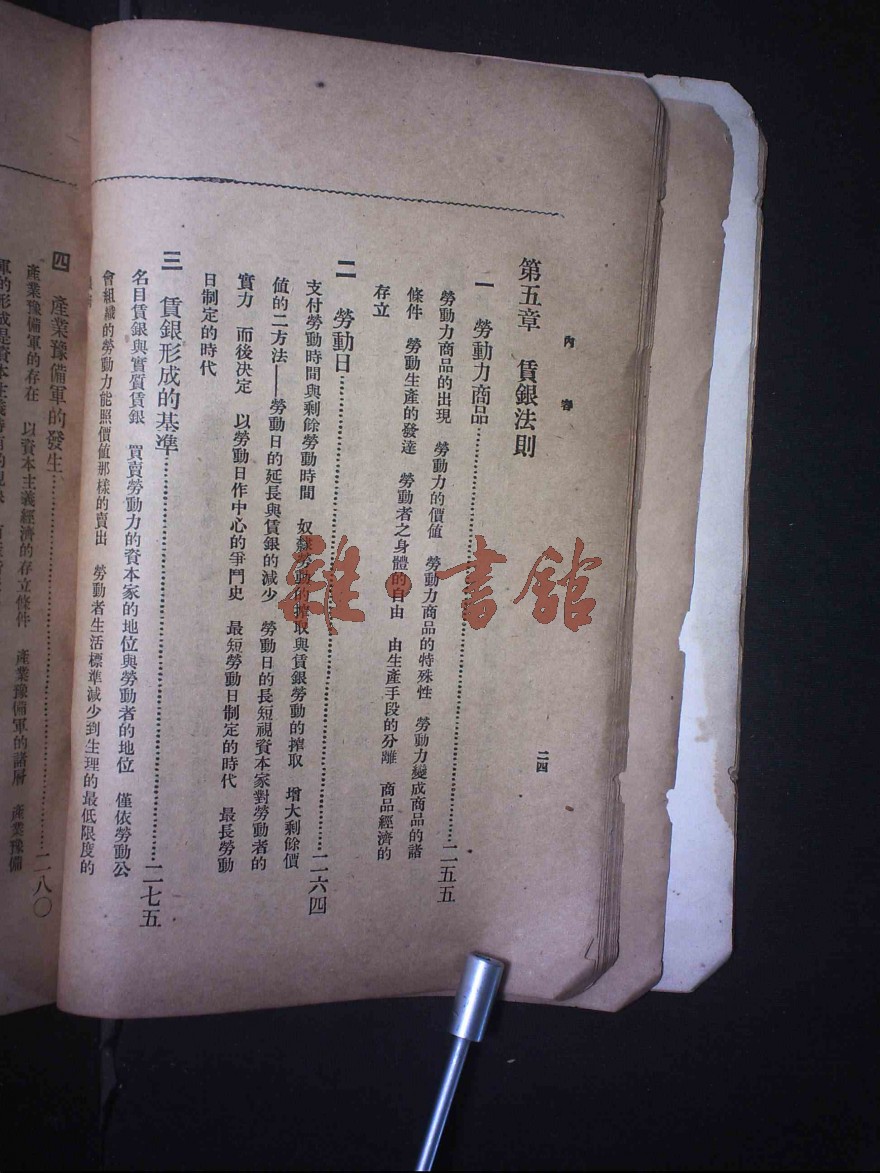 內容
二四
第五章　賃銀法則
一　勞動力商品……二五五
勞動力商品的出現　勞動力的價值　勞動力商品的特殊性　勞動力變成商品的諸
條件　勞動生產的發達　勞動者之身體的自由　由生產手段的分離　商品經濟的
存立
二　勞動日……二六四
支付勞動時間與剩餘勞動時間　奴隸勞動的搾取與賃銀勞動的搾取　增大剩餘價
値的二方法——勞動日的延長與賃銀的減少　勞動日的長短視資本家對勞動者的
實力　而後決定　以勞動日作中心的爭鬥史　最短勞動日制定的時代　最長勞動
日制定的時代
三　賃銀形成的基準……二七五
名目賃銀與實質賃銀　買賣勞動力的資本家的地位與勞動者的地位　僅依勞動公
會組織的勞動力能照價值那樣的賣出　勞動者生活標準減少到生理的最低限度的
四　產業豫備軍的發生……二八〇
產業豫備軍的存在　以資本主義經濟的存立條件　產業豫備軍的諸層　產業豫備
軍的形成是資本主義特有的現象
雜·書舘